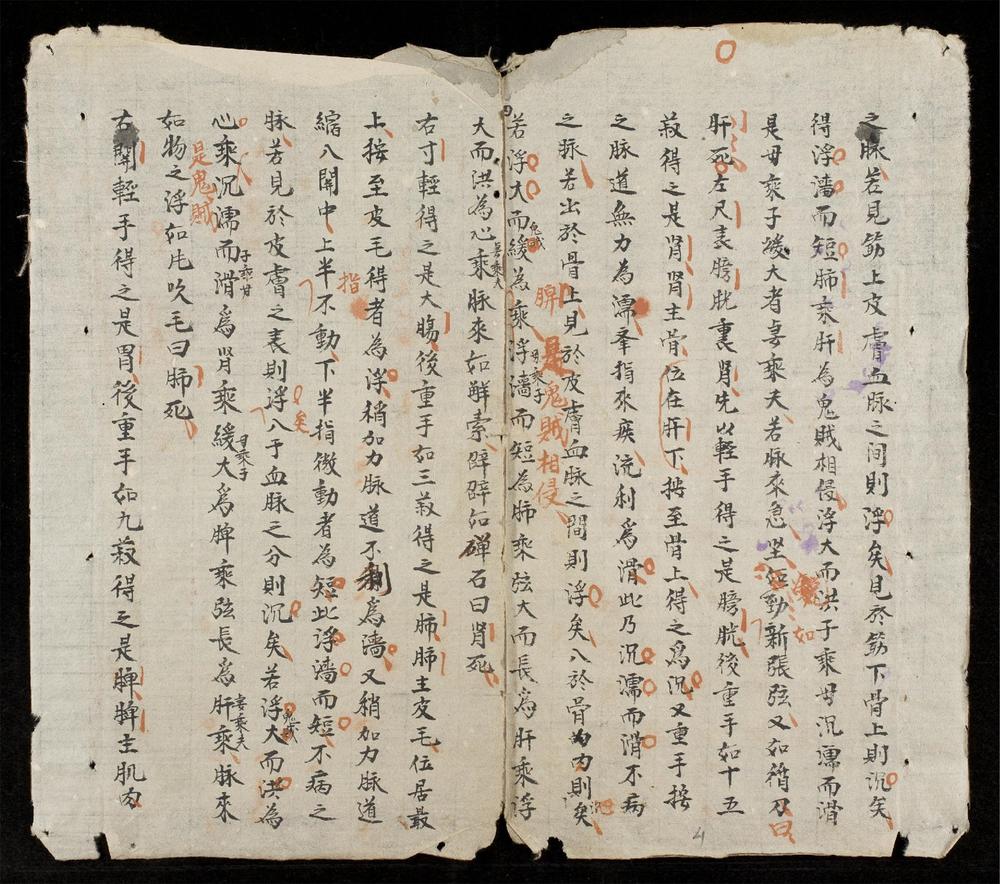 之脉若見筋上皮膚血脉之间則浮矣見於筋下骨上則沉矣
得浮濇而短肺乘肝為鬼賊相侵浮大而洪子乘母沉濡而滑
是母乘子緩大者妻乘夫若脉來急坚如勁新張弦又如循刀曰
肝死左尺表膀胱裏肾先以輕手得之是膀胱後重手如十五
菽得之是肾肾主骨位在肝下按至骨上得之為沉又重手按
之脉道無力為濡舉指來疾流利為滑此乃沉濡而滑不病
之脉若出於骨上見於皮膚血脉之間則浮矣入於骨為内則矣
脾是鬼賊相侵
若浮大而緩為乘浮濇而短為肺乘弦大而長為肝乘浮
鬼賊 母乘子
大而洪為心乘脉來如解索辟辟如彈石曰肾死
妻乘夫
右寸輕得之是大腸後重手如三菽得之是肺肺主皮毛位居最
上按至皮毛得者為浮稍加力脉道不利為濇又稍加力脉道
縮入関中上半不動下半指微動者為短此浮濇而短不病之
指
脉若見於皮膚之表則浮入于血脉之分則沉矣若浮大而洪為
矣 鬼賊
心乘沉濡而滑為肾乘緩大為脾乘弦長為肝乘脉來
是鬼賊 母乘子 妻乘夫
如物之浮如风吹毛曰肺死
右関輕手得之是胃後重手如九菽得之是脾脾主肌肉
4